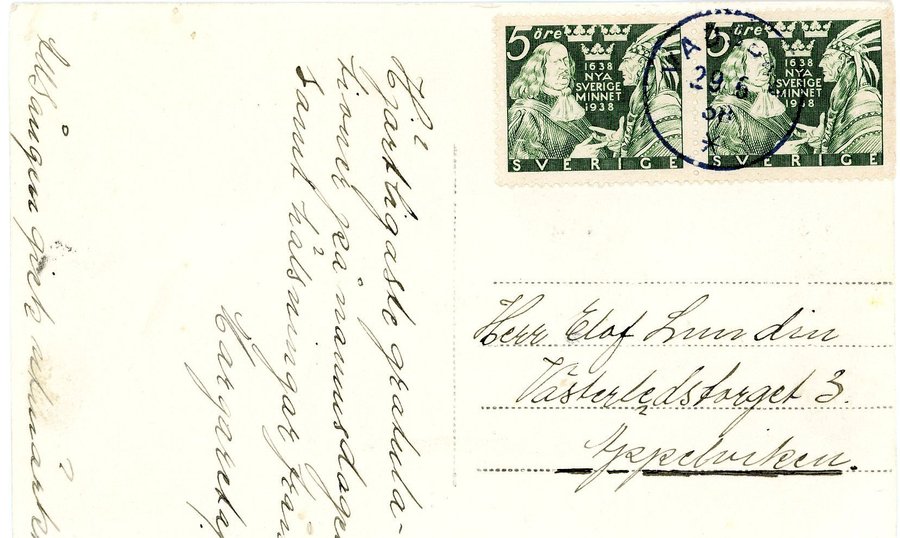 5 öre
1638
NYA
SVERIGE
MINNET
1938
SVERIGE
5 öre
1638
NYA
SVERIGE
MINNET
1938
SVERIGE
29 6
38
*
Herr Elof Lundin
Västerledstorget 3.
Äppelviken.
Hjärtligaste gratula-
tioner på namnsdagen
samt hälsningar från
Margareta
Utsången gick utmärkt